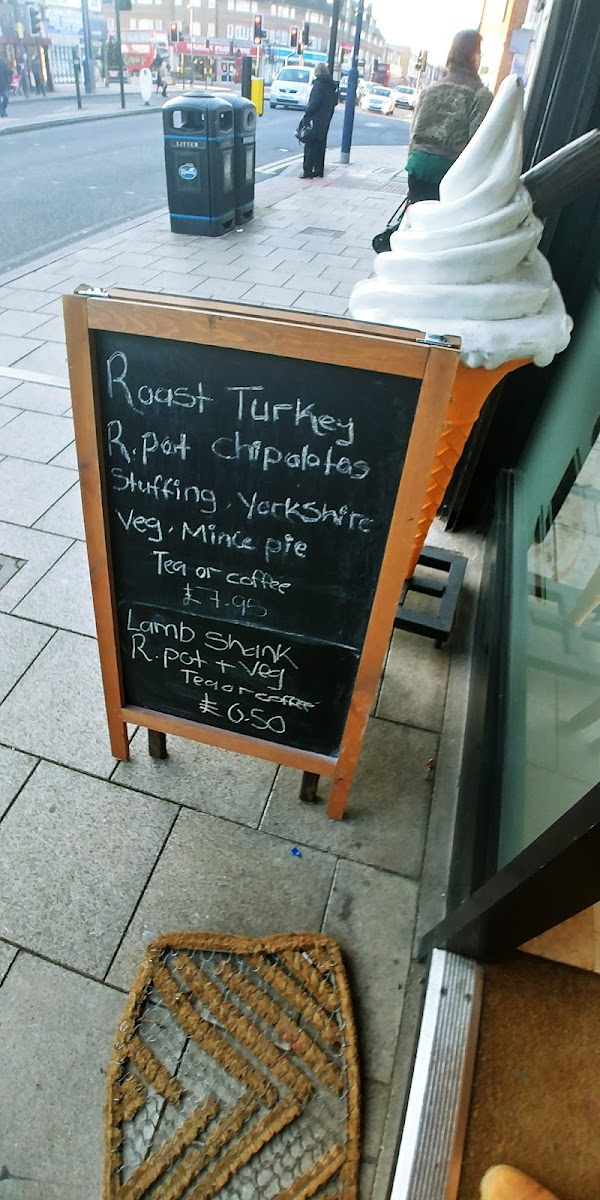 Roast Turkey
R.pot chipolatas
Stuffing, Yorkshire
Veg, Mince pie
Tea or coffee
£7.95
Lamb Shank
R.pot + Veg
Tea or coffee
£6.50
LITTER